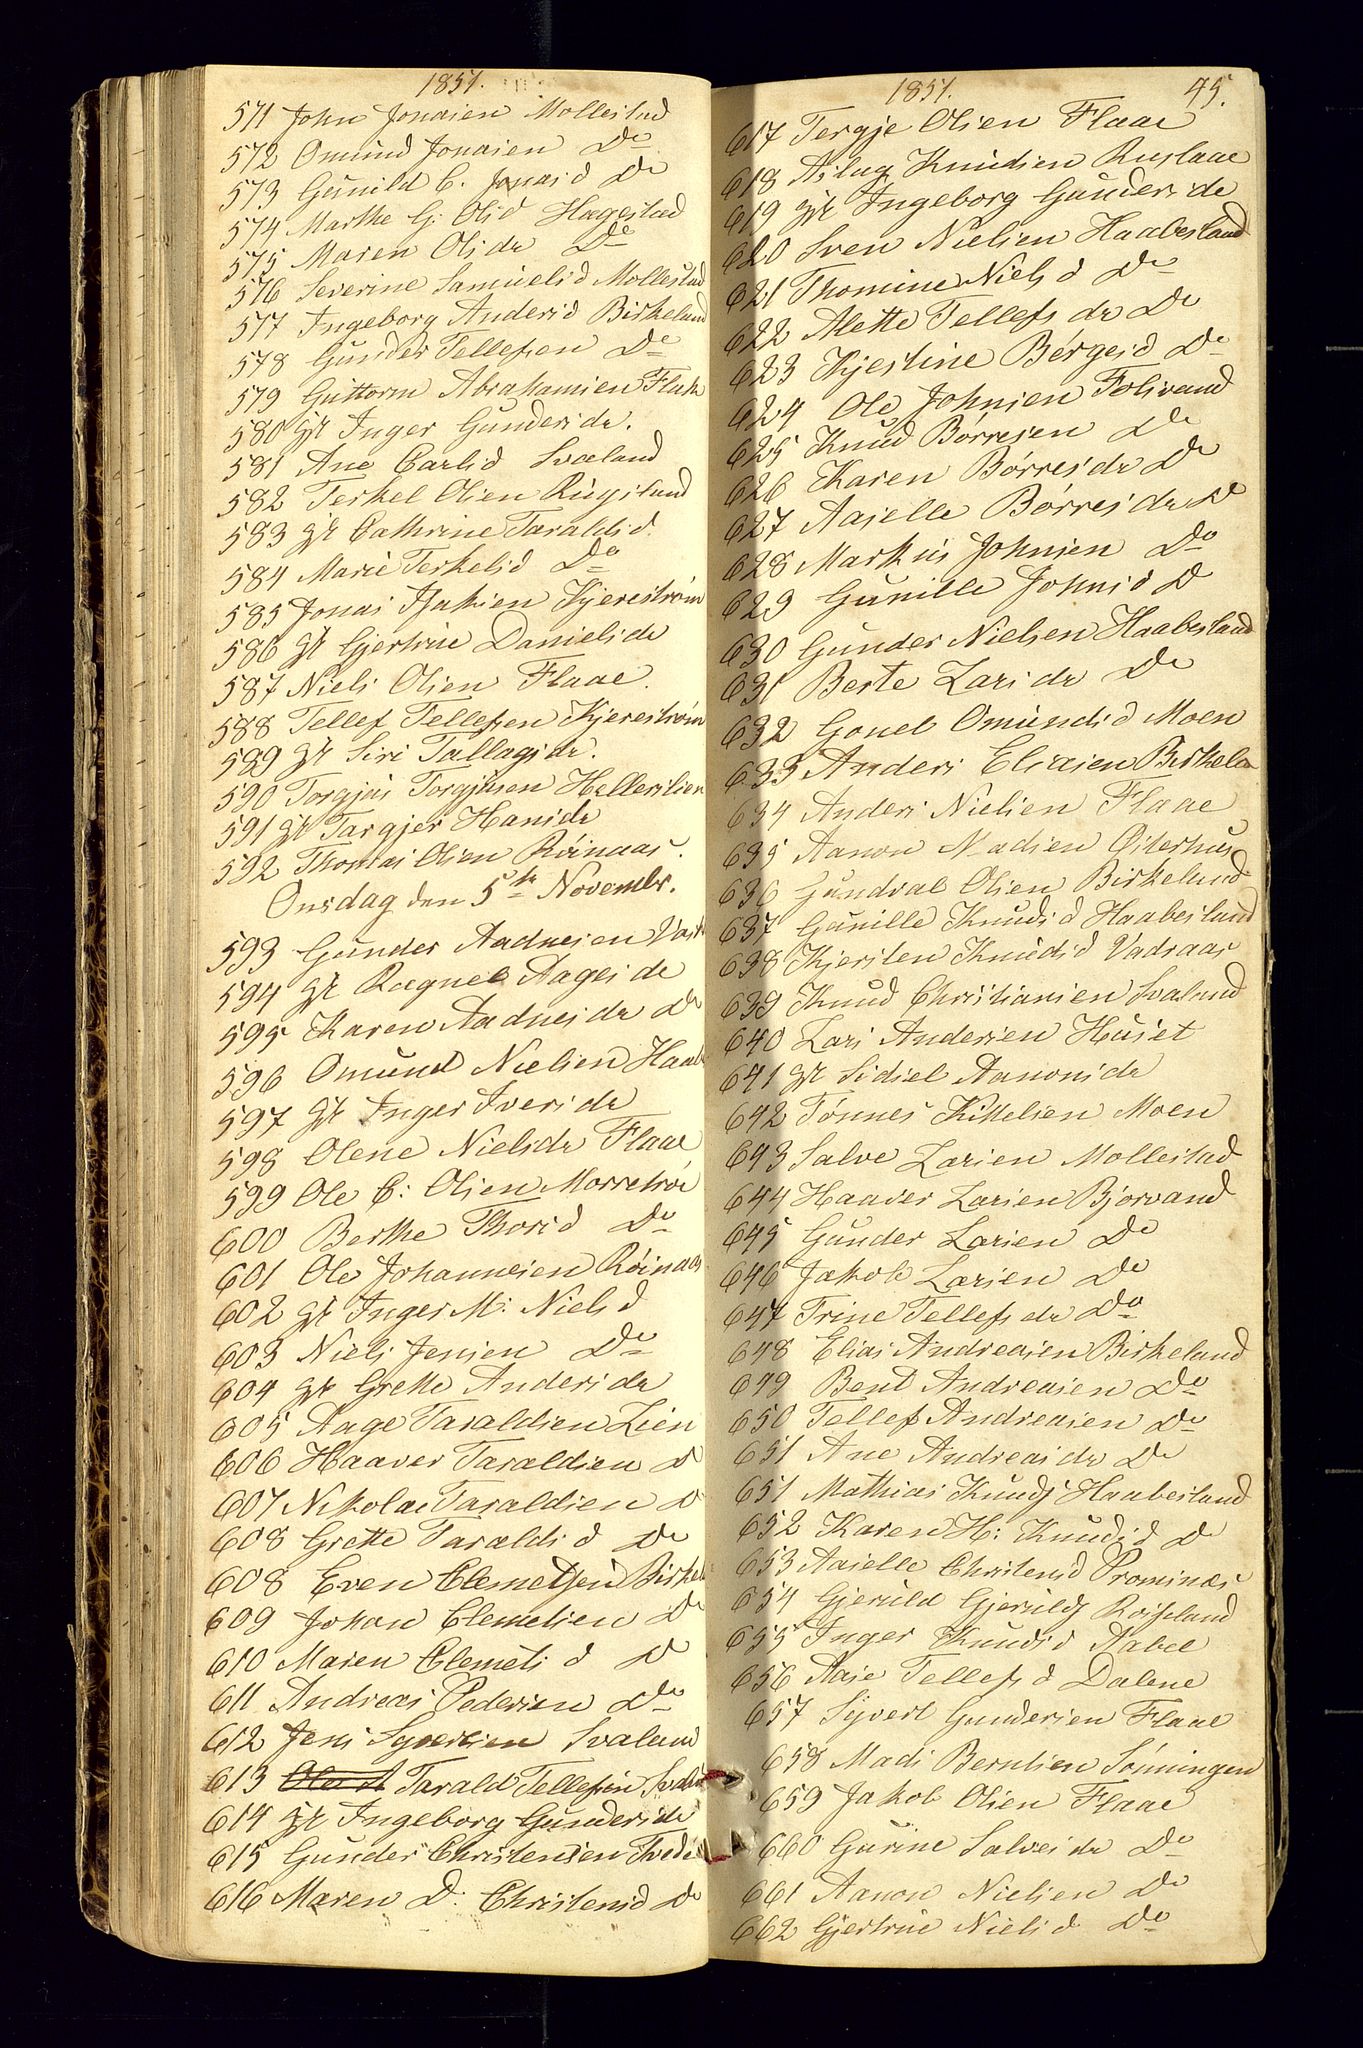 1851.
571 John Jonasen Mollestad
572 Omund Jonasen Do
573 Gunild C. Jonasd Do
574 Marthe G: Olsd Hægestad
575 Maren Olsdr Do
576 Severine Samuelsd Mollestad
577 Ingeborg Andersd Birkeland
578 Gunder Tellefsen Do
579 Guttorm Abrahamsen Flak
580 gt Inger Gundersdr.
581 Ane Carlsd Svaland
582 Terkel Olsen Rugsland
583 gt Cathrine Taraldsd.
584 Marie Terkelsd Do
585 Jonas Isaksen Kjerestrøm
586 gt Gjertrue Danielsdr
587 Niels Olsen Flaae.
588 Tellef Tellefsen Kjerestrøm
589 gt Siri Tallagsdr.
590 Torgjus Torgjusen Hellerslien
591 gt Targjer Hansdr
592 Thomas Olsen Röinaas.
Onsdag den 5te Novembr.
593 Gunder Aadnesen
594 gt Rægnel Aagesdr
595 Karen Aadnesdr Do
596 Omund Nielsen Haab
597 gt Inger Iversdr
598 Olene Nielsdr Flaae
599 Ole C: Olsen Morretröe
600 Berthe Thorsd Do
601 Ole Johannesen Röinaas
602 gt Inger M: Nielsd
603 Niels Jensen Do
604 gt Grette Andersdr
605 Aage Taraldsen Lien
606 Haaver Taraldsen D
607 Nikolai Taraldsen D
608 Grette Taraldsd Do
608 Even Clemetsen Birkel
609 Johan Clemetsen Do
610 Maren Clemetsd D
611 Andreas Pedersen Do
612 Jens Syvertsen Svaland
613 Tarald Tellefsen Sval
614 gt Ingeborg Gundersdr
615 Gunder Christensen Tvede
616 Maren D. Christensd Do
1851. 45.
617 Tergje Olsen Flaae
618 Aslag Knudsen Ruslaae
619 gt Ingeborg Gundersdr
620 Sven Nielsen Haabesland
621 Thomine Nielsd Do
622 Alette Tellefsdr Do
623 Kjestine Börgesd Do
624 Ole Johnsen Tolivand
625 Knud Börresen Do
626 Karen Börresdr Do
627 Aaselle Börresdr D
628 Markus Johnsen Do
629 Gunille Johnsd D
630 Gunder Nielsen Haabesland
631 Berte Larsdr Do
632 Gonel Omundsd Moen
633 Anders Eliasen Birkela
634 Anders Nielsen Flaae
635 Aanon Madsen Osterhus
636 Gundval Olsen Birkeland
637 Gunille Knudsd Haabesland
638 Kjersten Knudsd Vadraas
639 Knud Christiansen Svaland
640 Lars Andersen Huset
641 gt Sidsel Aanonsdr
642 Tönnes Kittelsen Moen
643 Salve Larsen Mollestad
644 Haaver Larsen Bjorvand
645 Gunder Larsen Do
646 Jakob Larsen Do
647 Trine Tellefsdr Do
648 Elias Andreasen Birkeland
649 Bent Andreasen Do
650 Tellef Andreasen Do
651 Ane Andreasdr Do
651 Mathias Knuds Haabesland
652 Karen H: Knudsd D
653 Aaselle Christensd Prominæs
654 Gjeruld Gjerulds Roisland
655 Inger Knudsd Aabel
656 Aase Tellefsd Dalene
657 Sijvert Gundersen Flaae
658 Mads Berntsen Sönningen
659 Jakob Olsen Flaae
660 Gurine Salvesdr Do
661 Aanon Nielsen Do
662 Gjertrue Nielsd Do